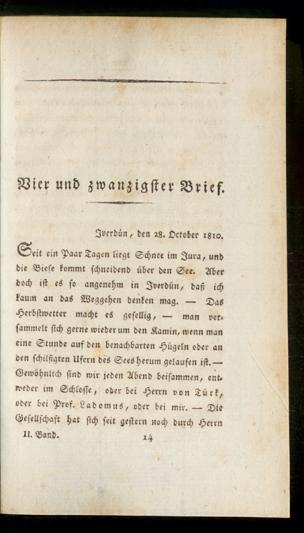 Vier und zwanzigster Brief.
Iverdün, den 28. October 1810.
Seit ein Paar Tagen liegt Schnee im Jura, und
die Biese kommt schneidend über den See. Aber
doch ist es so angenehm in Iverdün, daß ich
kaum an das Weggehen denken mag. — Das
Herbstwetter macht es gesellig, — man ver-
sammelt sich gerne wieder um den Kamin, wenn man
eine Stunde auf den benachbarten Hügeln oder an
den schilfigten Ufern des Sees herum gelaufen ist. —
Gewöhnlich sind wir jeden Abend beisammen, ent-
weder im Schlosse, oder bei Herrn von Türk,
oder bei Prof. Ladomus, oder bei mir. — Die
Gesellschaft hat sich seit gestern noch durch Herrn
II. Band. 14